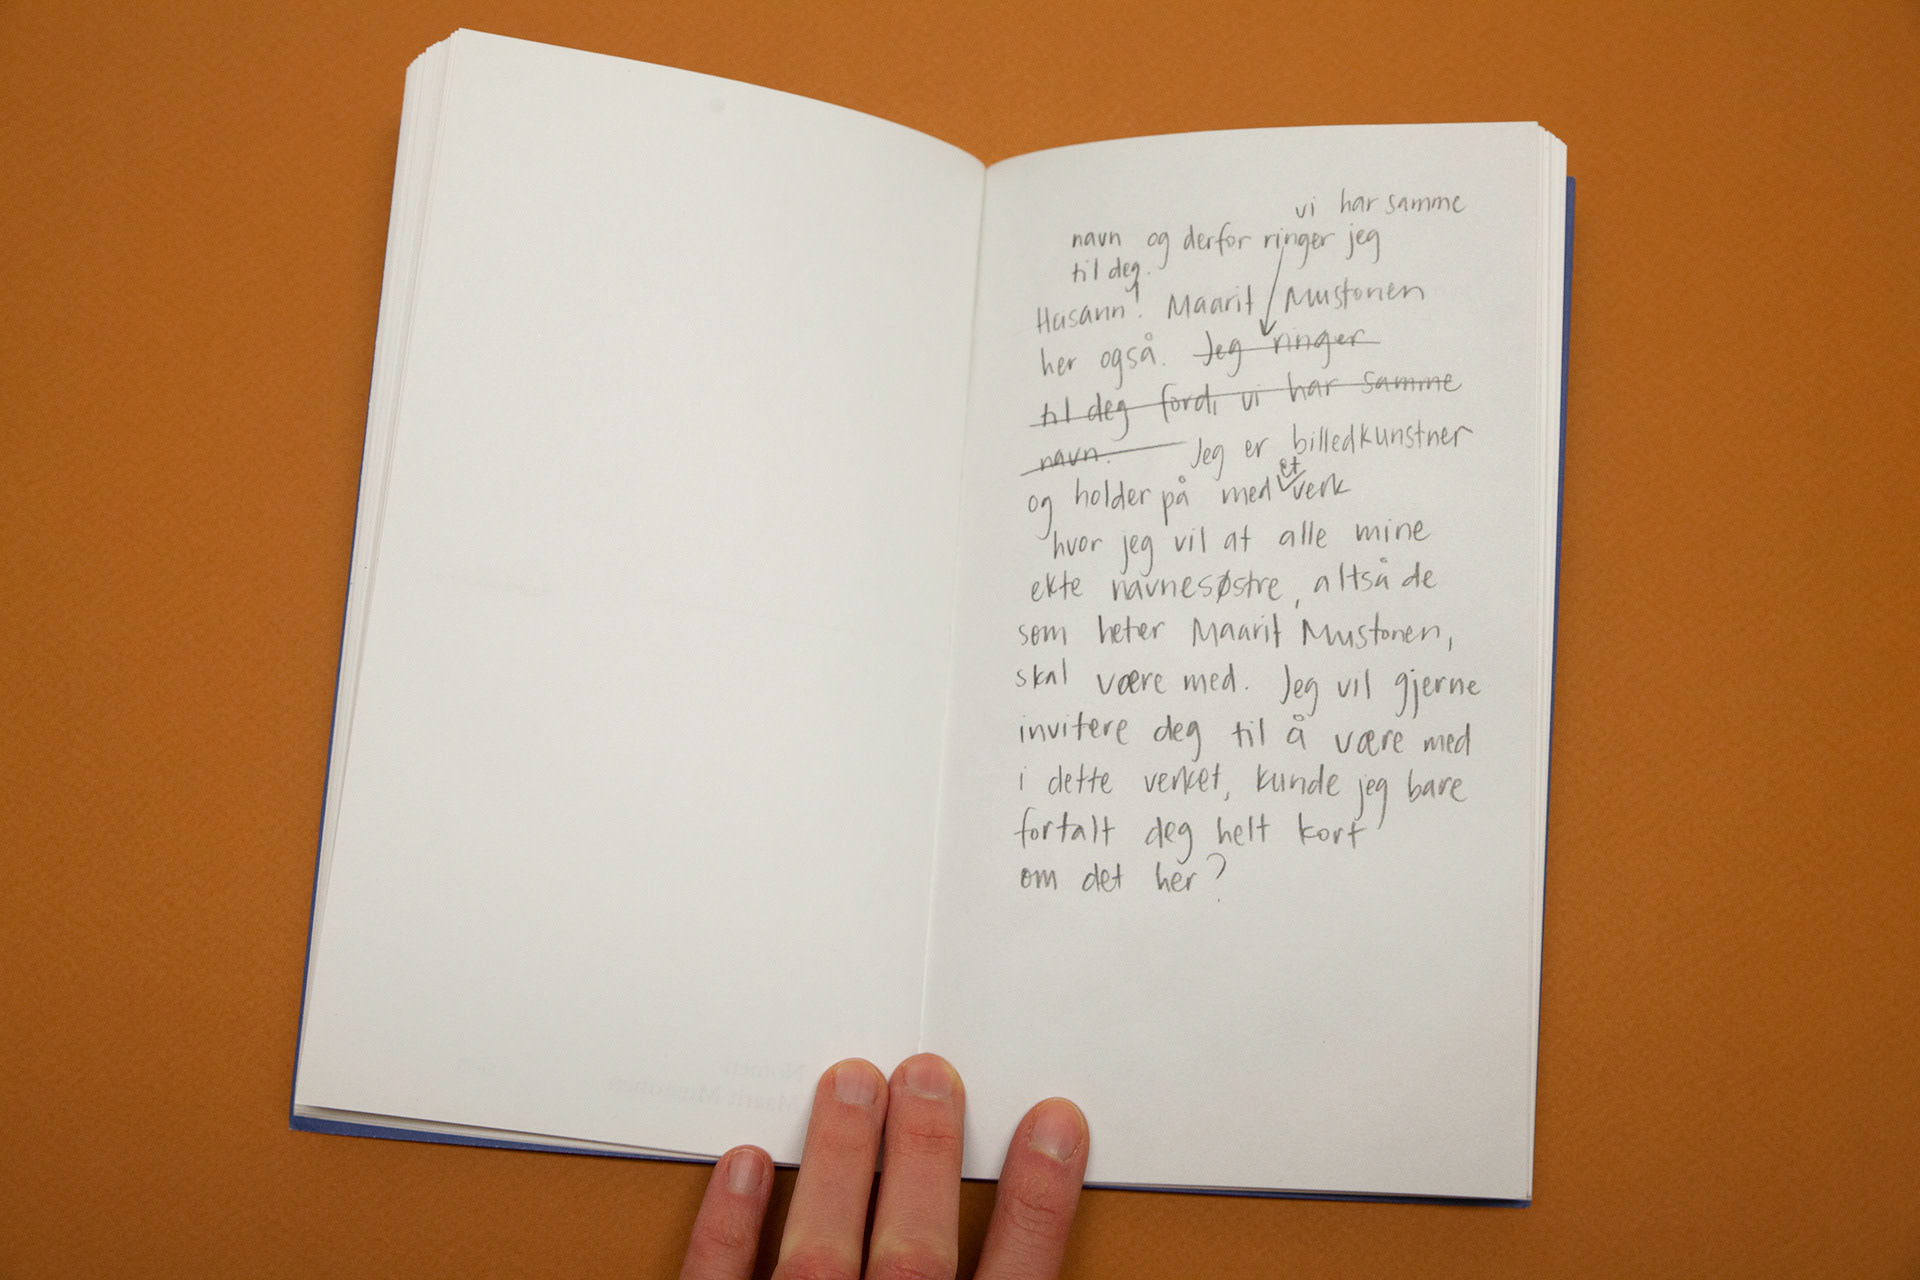 vi har samme
navn og derfor ringer jeg
til deg.
Haisann! Maarit Mustonen
her også. Jeg ringer
til deg fordi vi har samme
navn. Jeg er billedkunstner
og holder på med et verk
hvor jeg vil at alle mine
ekte navnesøstre, altså de
som heter Maarit Mustonen,
skal være med. Jeg vil gjerne
invitere deg til å være med
i dette verket, kunde jeg bare
fortalt deg helt kort
om det her?
Nomen
Maarit Mustonen